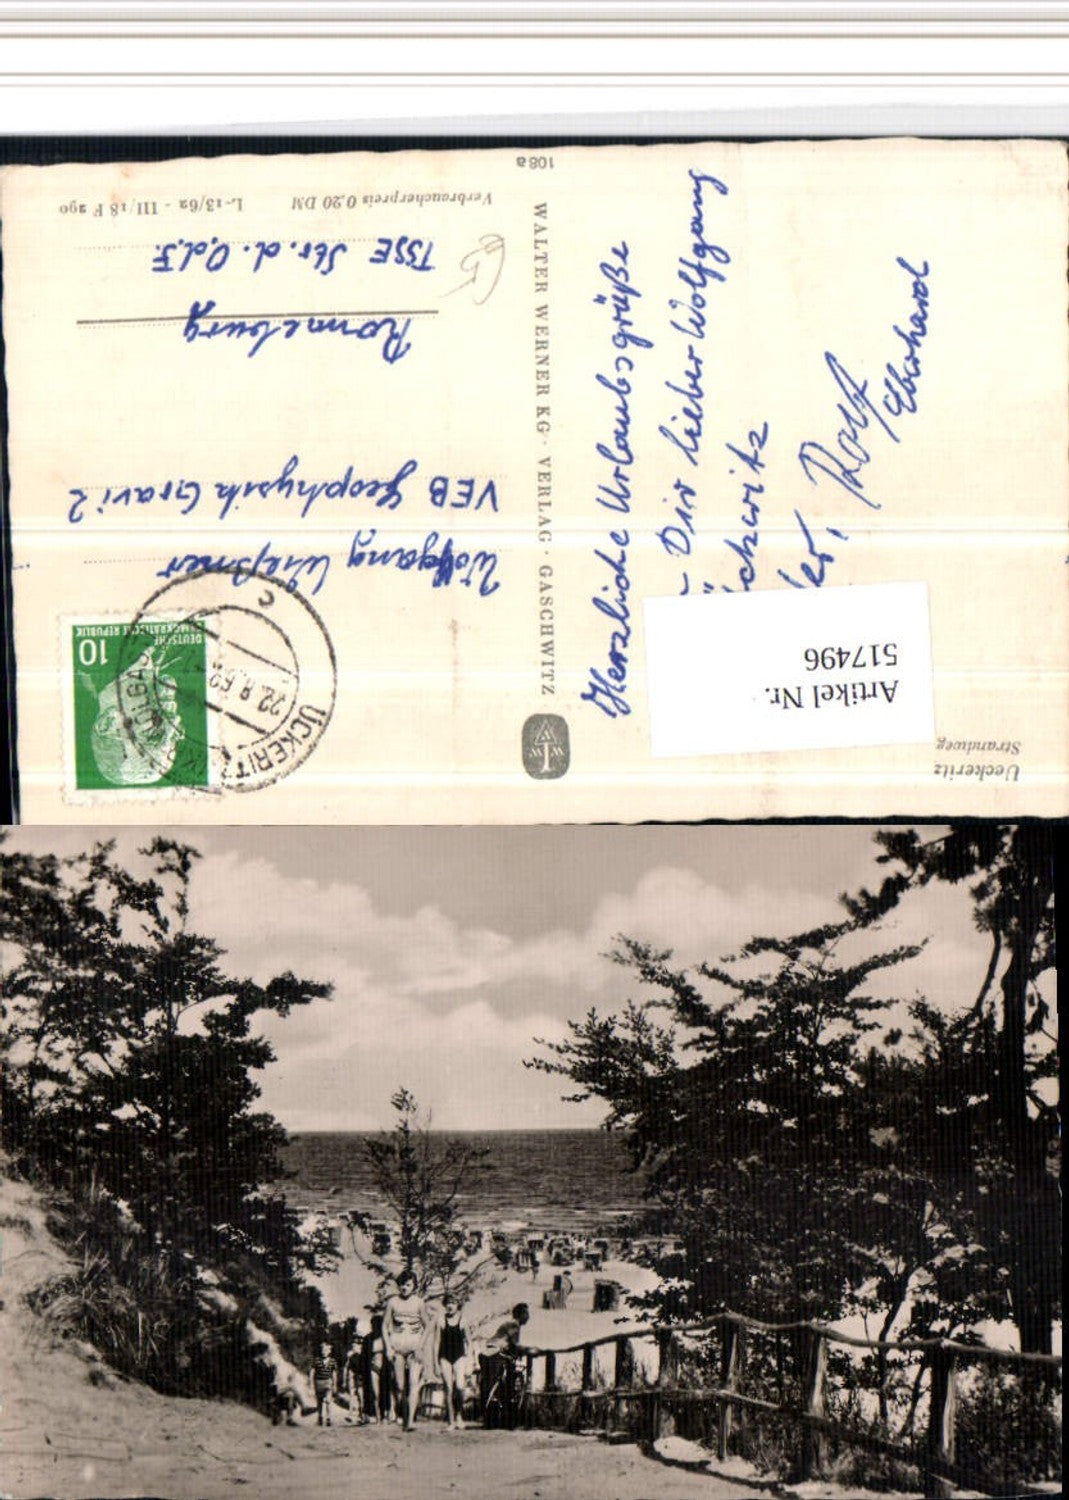 Ueckeritz
Strandweg
Artikel Nr.
517496
Herzliche Urlaubsgrüße
Dir lieber Wolfgang
Rolf
Eberhard
WALTER WERNER KG · VERLAG · GASCHWITZ
108a
DEUTSCHE
DEMOKRATISCHE REPUBLIK
10
ÜCKERITZ
22.8.62
c
Wolfgang
VEB Geophysik Gravi 2
Ronneburg
Str. d. O.d.F.
Verbraucherpreis 0,20 DM L-13/62 - III/18 F 290